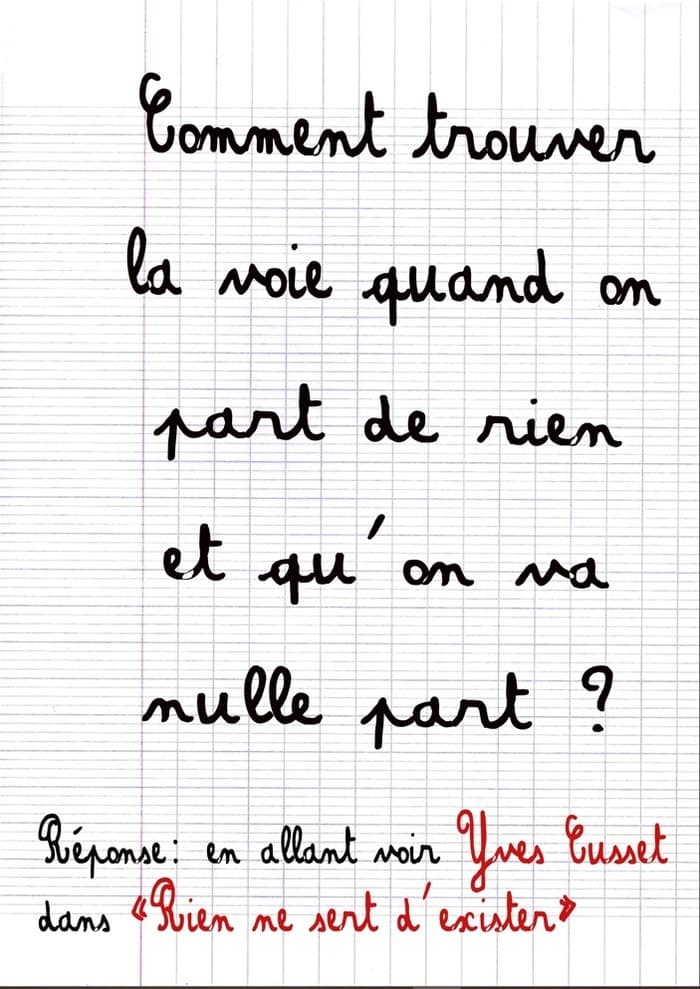 Comment trouver
la voie quand on
part de rien
et qu'on va
nulle part ?
Réponse: en allant voir Yves Cusset
dans «Rien ne sert d'exister»